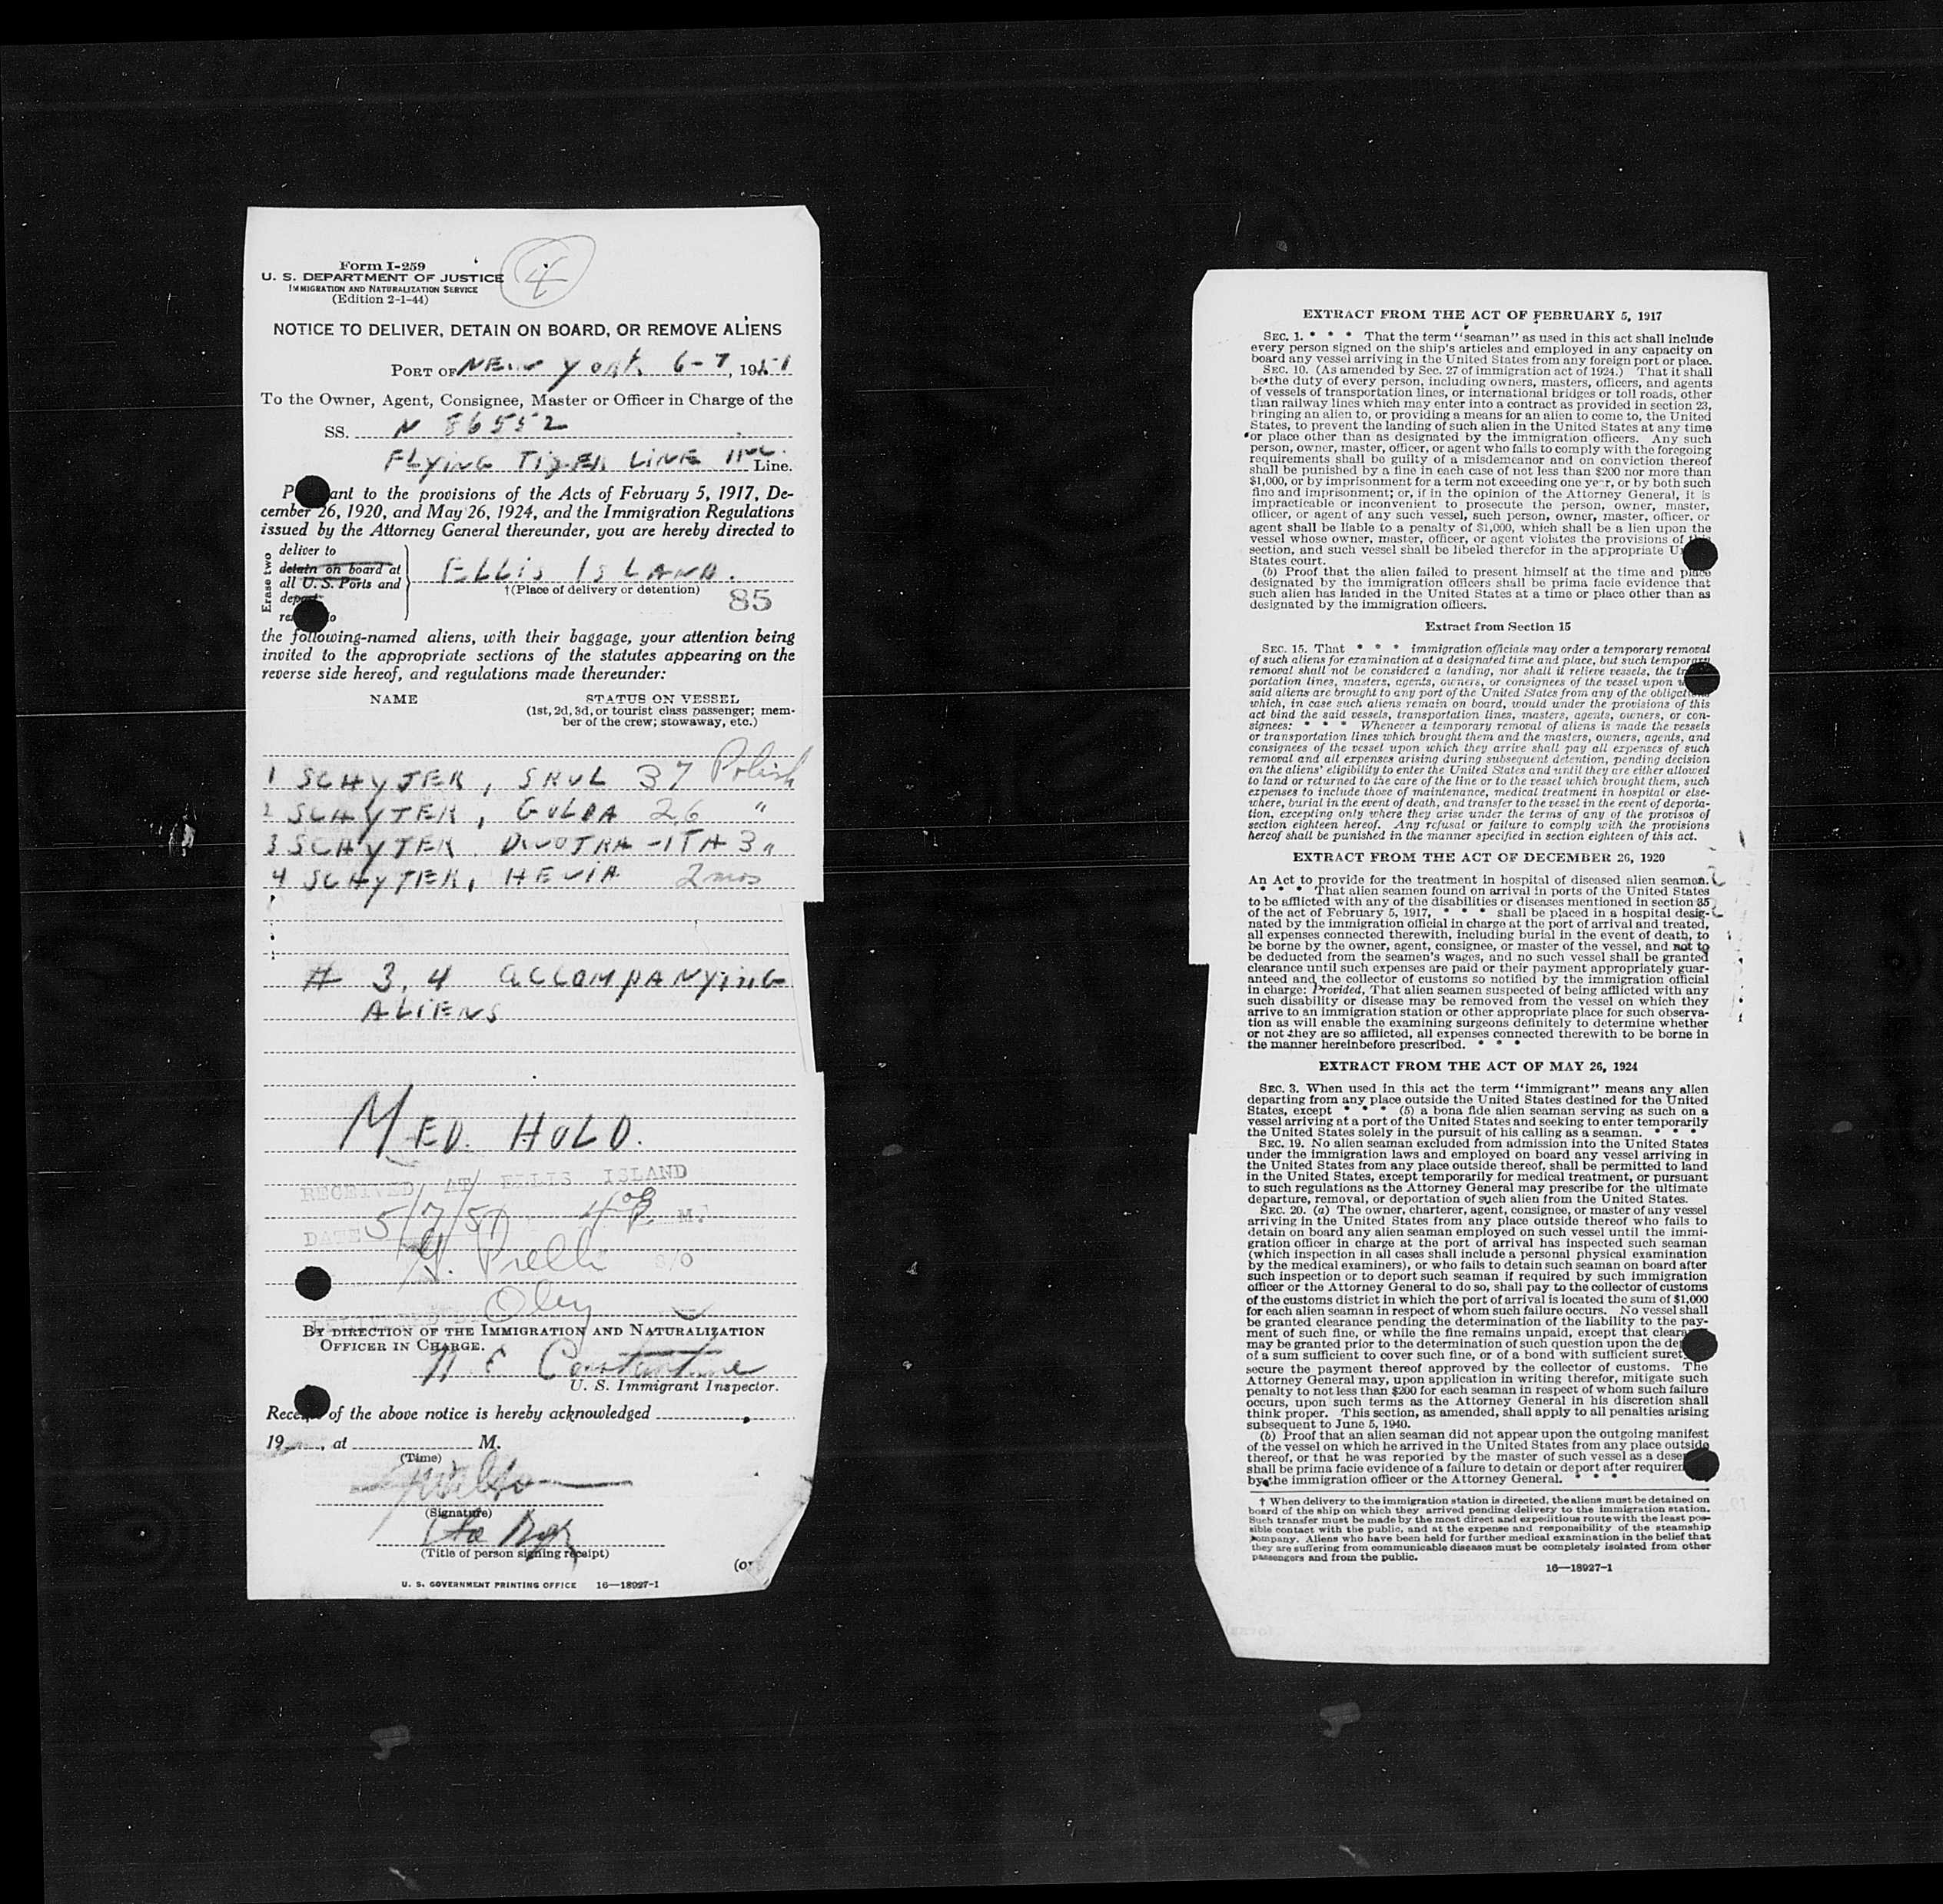 Form I-259
U. S. DEPARTMENT OF JUSTICE
IMMIGRATION AND NATURALIZATION SERVICE
(Edition 2-1-44)
4
NOTICE TO DELIVER, DETAIN ON BOARD, OR REMOVE ALIENS
PORT OF NEW YORK 6-7, 1951
To the Owner, Agent, Consignee, Master or Officer in Charge of the
SS. N 86552
FLYING TIGER LINE INC. Line.
P ant to the provisions of the Acts of February 5, 1917, De-
cember 26, 1920, and May 26, 1924, and the Immigration Regulations
issued by the Attorney General thereunder, you are hereby directed to
Erase two
deliver to
detain on board at
all U. S. Ports and
deport
ELLIS ISLAND.
†(Place of delivery or detention)
85
the following-named aliens, with their baggage, your attention being
invited to the appropriate sections of the statutes appearing on the
reverse side hereof, and regulations made thereunder:
NAME STATUS ON VESSEL
(1st, 2d, 3d, or tourist class passenger; mem-
ber of the crew; stowaway, etc.)
1 SCHYTER, SRUL 37 Polish
2 SCHYTER, GOLDA 26 "
3 SCHYTER, DWOJRA-ITA 3 "
4 SCHYTER, HEVIA 2 mos
# 3, 4 ACCOMPANYING
ALIENS
MED. HOLD.
RECEIVED AT ELLIS ISLAND
DATE 5/7/51 4 M.
S/O
BY DIRECTION OF THE IMMIGRATION AND NATURALIZATION
OFFICER IN CHARGE.
N E Constantine
U. S. Immigrant Inspector.
Receipt of the above notice is hereby acknowledged
19 , at M.
(Time)
(Signature)
(Title of person signing receipt)
U. S. GOVERNMENT PRINTING OFFICE 16—18927-1
EXTRACT FROM THE ACT OF FEBRUARY 5, 1917
SEC. 1. * * * That the term "seaman" as used in this act shall include
every person signed on the ship's articles and employed in any capacity on
board any vessel arriving in the United States from any foreign port or place.
SEC. 10. (As amended by Sec. 27 of immigration act of 1924.) That it shall
be the duty of every person, including owners, masters, officers, and agents
of vessels of transportation lines, or international bridges or toll roads, other
than railway lines which may enter into a contract as provided in section 23,
bringing an alien to, or providing a means for an alien to come to, the United
States, to prevent the landing of such alien in the United States at any time
or place other than as designated by the immigration officers. Any such
person, owner, master, officer, or agent who fails to comply with the foregoing
requirements shall be guilty of a misdemeanor and on conviction thereof
shall be punished by a fine in each case of not less than $200 nor more than
$1,000, or by imprisonment for a term not exceeding one year, or by both such
fine and imprisonment; or, if in the opinion of the Attorney General, it is
impracticable or inconvenient to prosecute the person, owner, master,
officer, or agent of any such vessel, such person, owner, master, officer, or
agent shall be liable to a penalty of $1,000, which shall be a lien upon the
vessel whose owner, master, officer, or agent violates the provisions of this
section, and such vessel shall be libeled therefor in the appropriate U
States court.
(b) Proof that the alien failed to present himself at the time and place
designated by the immigration officers shall be prima facie evidence that
such alien has landed in the United States at a time or place other than as
designated by the immigration officers.
Extract from Section 15
SEC. 15. That * * * immigration officials may order a temporary removal
of such aliens for examination at a designated time and place, but such temporary
removal shall not be considered a landing, nor shall it relieve vessels, the tr
portation lines, masters, agents, owners, or consignees of the vessel upon w
said aliens are brought to any port of the United States from any of the obligations
which, in case such aliens remain on board, would under the provisions of this
act bind the said vessels, transportation lines, masters, agents, owners, or con-
signees: * * * Whenever a temporary removal of aliens is made the vessels
or transportation lines which brought them and the masters, owners, agents, and
consignees of the vessel upon which they arrive shall pay all expenses of such
removal and all expenses arising during subsequent detention, pending decision
on the aliens' eligibility to enter the United States and until they are either allowed
to land or returned to the care of the line or to the vessel which brought them, such
expenses to include those of maintenance, medical treatment in hospital or else-
where, burial in the event of death, and transfer to the vessel in the event of deporta-
tion, excepting only where they arise under the terms of any of the provisos of
section eighteen hereof. Any refusal or failure to comply with the provisions
hereof shall be punished in the manner specified in section eighteen of this act.
EXTRACT FROM THE ACT OF DECEMBER 26, 1920
An Act to provide for the treatment in hospital of diseased alien seamen.
* * * That alien seamen found on arrival in ports of the United States
to be afflicted with any of the disabilities or diseases mentioned in section 35
of the act of February 5, 1917, * * * shall be placed in a hospital desig-
nated by the immigration official in charge at the port of arrival and treated,
all expenses connected therewith, including burial in the event of death, to
be borne by the owner, agent, consignee, or master of the vessel, and not to
be deducted from the seamen's wages, and no such vessel shall be granted
clearance until such expenses are paid or their payment appropriately guar-
anteed and the collector of customs so notified by the immigration official
in charge: Provided, That alien seamen suspected of being afflicted with any
such disability or disease may be removed from the vessel on which they
arrive to an immigration station or other appropriate place for such observa-
tion as will enable the examining surgeons definitely to determine whether
or not they are so afflicted, all expenses connected therewith to be borne in
the manner hereinbefore prescribed. * * *
EXTRACT FROM THE ACT OF MAY 26, 1924
SEC. 3. When used in this act the term "immigrant" means any alien
departing from any place outside the United States destined for the United
States, except * * * (5) a bona fide alien seaman serving as such on a
vessel arriving at a port of the United States and seeking to enter temporarily
the United States solely in the pursuit of his calling as a seaman. * * *
SEC. 19. No alien seaman excluded from admission into the United States
under the immigration laws and employed on board any vessel arriving in
the United States from any place outside thereof, shall be permitted to land
in the United States, except temporarily for medical treatment, or pursuant
to such regulations as the Attorney General may prescribe for the ultimate
departure, removal, or deportation of such alien from the United States.
SEC. 20. (a) The owner, charterer, agent, consignee, or master of any vessel
arriving in the United States from any place outside thereof who fails to
detain on board any alien seaman employed on such vessel until the immi-
gration officer in charge at the port of arrival has inspected such seaman
(which inspection in all cases shall include a personal physical examination
by the medical examiners), or who fails to detain such seaman on board after
such inspection or to deport such seaman if required by such immigration
officer or the Attorney General to do so, shall pay to the collector of customs
of the customs district in which the port of arrival is located the sum of $1,000
for each alien seaman in respect of whom such failure occurs. No vessel shall
be granted clearance pending the determination of the liability to the pay-
ment of such fine, or while the fine remains unpaid, except that clearan
may be granted prior to the determination of such question upon the de
of a sum sufficient to cover such fine, or of a bond with sufficient suret
secure the payment thereof approved by the collector of customs. The
Attorney General may, upon application in writing therefor, mitigate such
penalty to not less than $200 for each seaman in respect of whom such failure
occurs, upon such terms as the Attorney General in his discretion shall
think proper. This section, as amended, shall apply to all penalties arising
subsequent to June 5, 1940.
(b) Proof that an alien seaman did not appear upon the outgoing manifest
of the vessel on which he arrived in the United States from any place outside
thereof, or that he was reported by the master of such vessel as a deser
shall be prima facie evidence of a failure to detain or deport after requirem
by the immigration officer or the Attorney General. * * *
† When delivery to the immigration station is directed, the aliens must be detained on
board of the ship on which they arrived pending delivery to the immigration station.
Such transfer must be made by the most direct and expeditious route with the least pos-
sible contact with the public, and at the expense and responsibility of the steamship
company. Aliens who have been held for further medical examination in the belief that
they are suffering from communicable diseases must be completely isolated from other
passengers and from the public.
16—18927-1